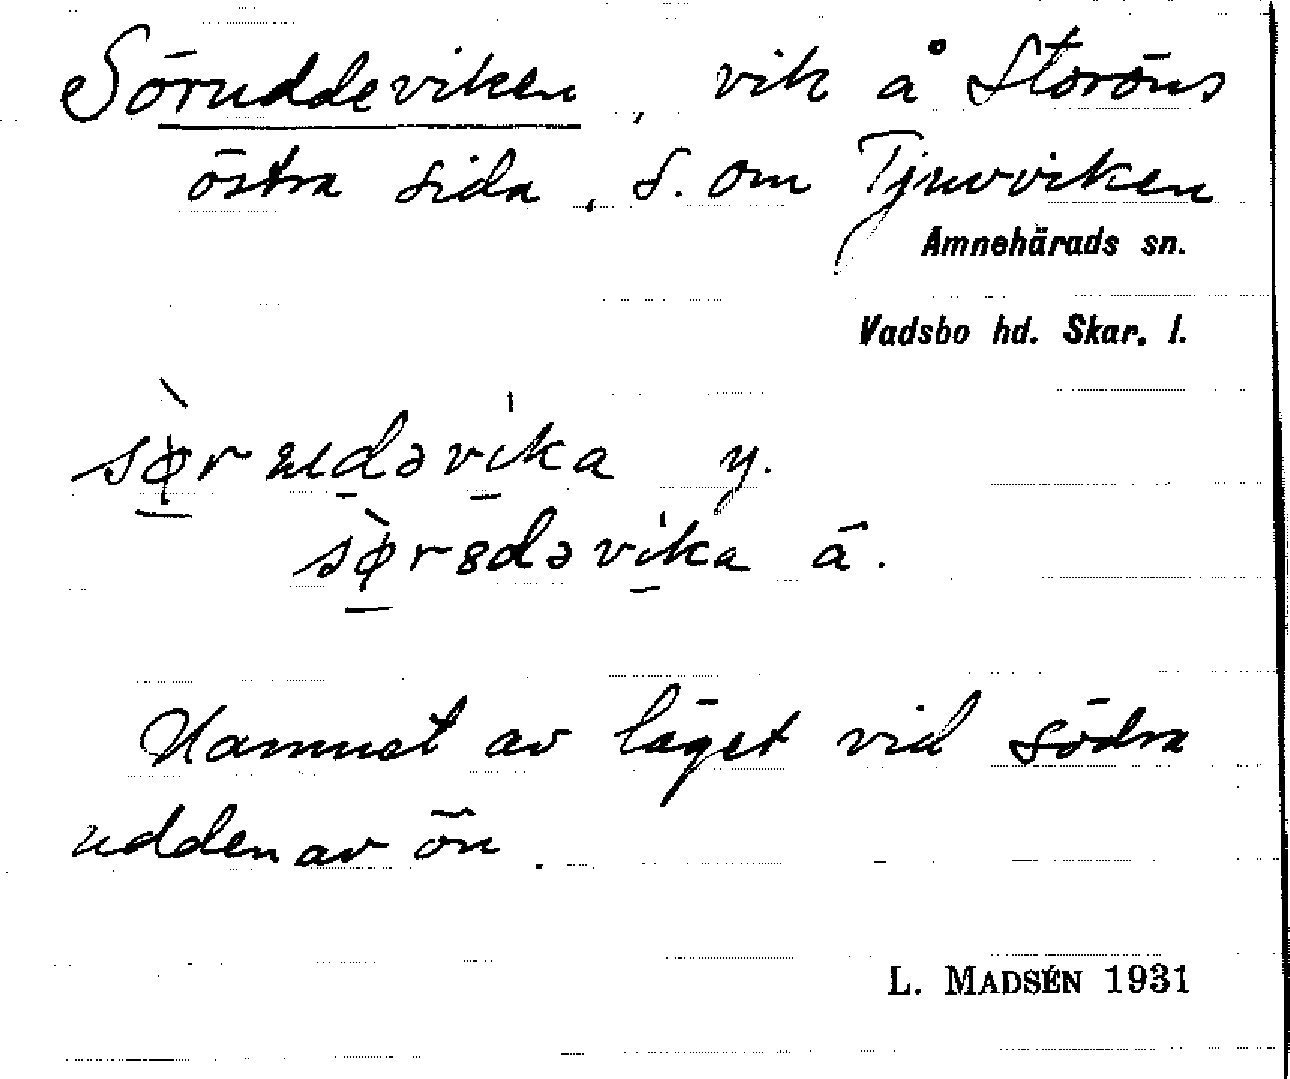 Söruddeviken, vik å Storöns
östra sida, S. om Tjuvviken
Amnehärads sn.
Vadsbo hd. Skar. l.
y.
ä.
Namnet av läget vid södra
udden av ön.
L. MADSÉN 1931